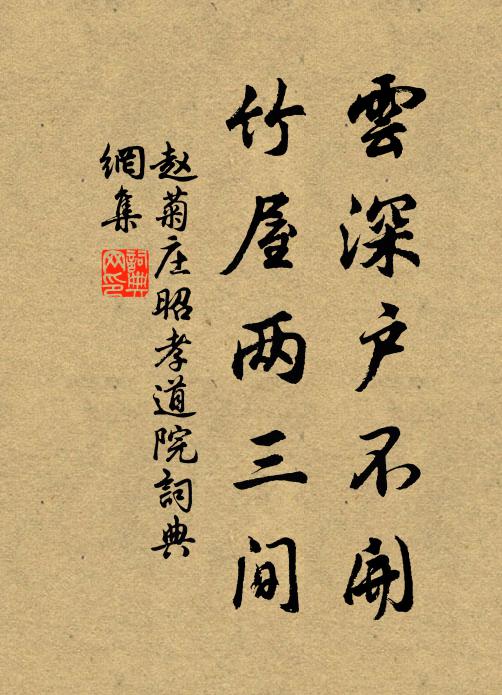 雲深户不開
竹屋两三间
赵菊庄昭孝道院詞典
網集
詞典
网印